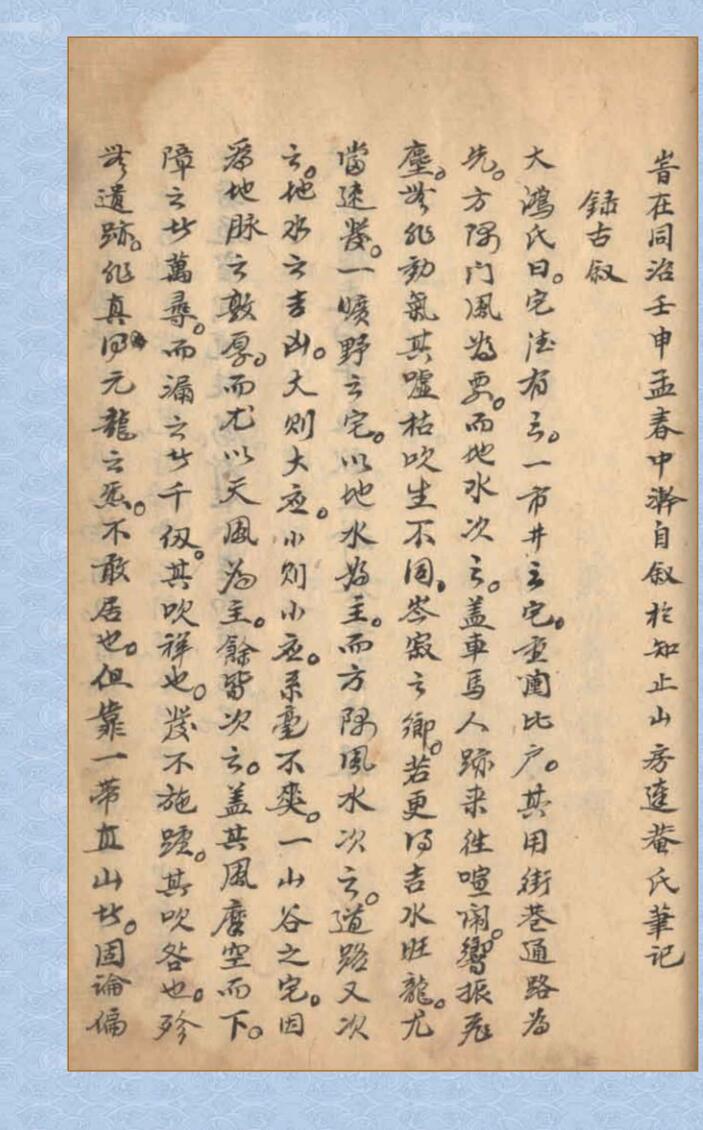 旹在同治壬申孟春中澣自叙於知止山房蓮菴氏筆记
録古叙
大鴻氏曰。宅法有三。一市井之宅。重闉比户。其用街巷通路為
先。方隅门風為要。而地水次之。盖車馬人跡来徃喧闹。響振
塵。無非動氣其嘘枯吹生不同。岑寂之鄉。若更得吉水旺龍。尤
當速發。一曠野之宅。以地水為主。而方隅風水次之。道路又次
之。地水之吉凶。大則大应。小則小应。系毫不爽。一山谷之宅。因
為地脉之敦厚。而尤以天風為主。餘皆次之。盖其風摩空而下。
障之萬尋。而漏之千仭。其吹祥也。發不旋踵。其吹咎也。殄
無遺跡。非真得元龍之炁。不敢居也。但靠一帶直山。固論偏